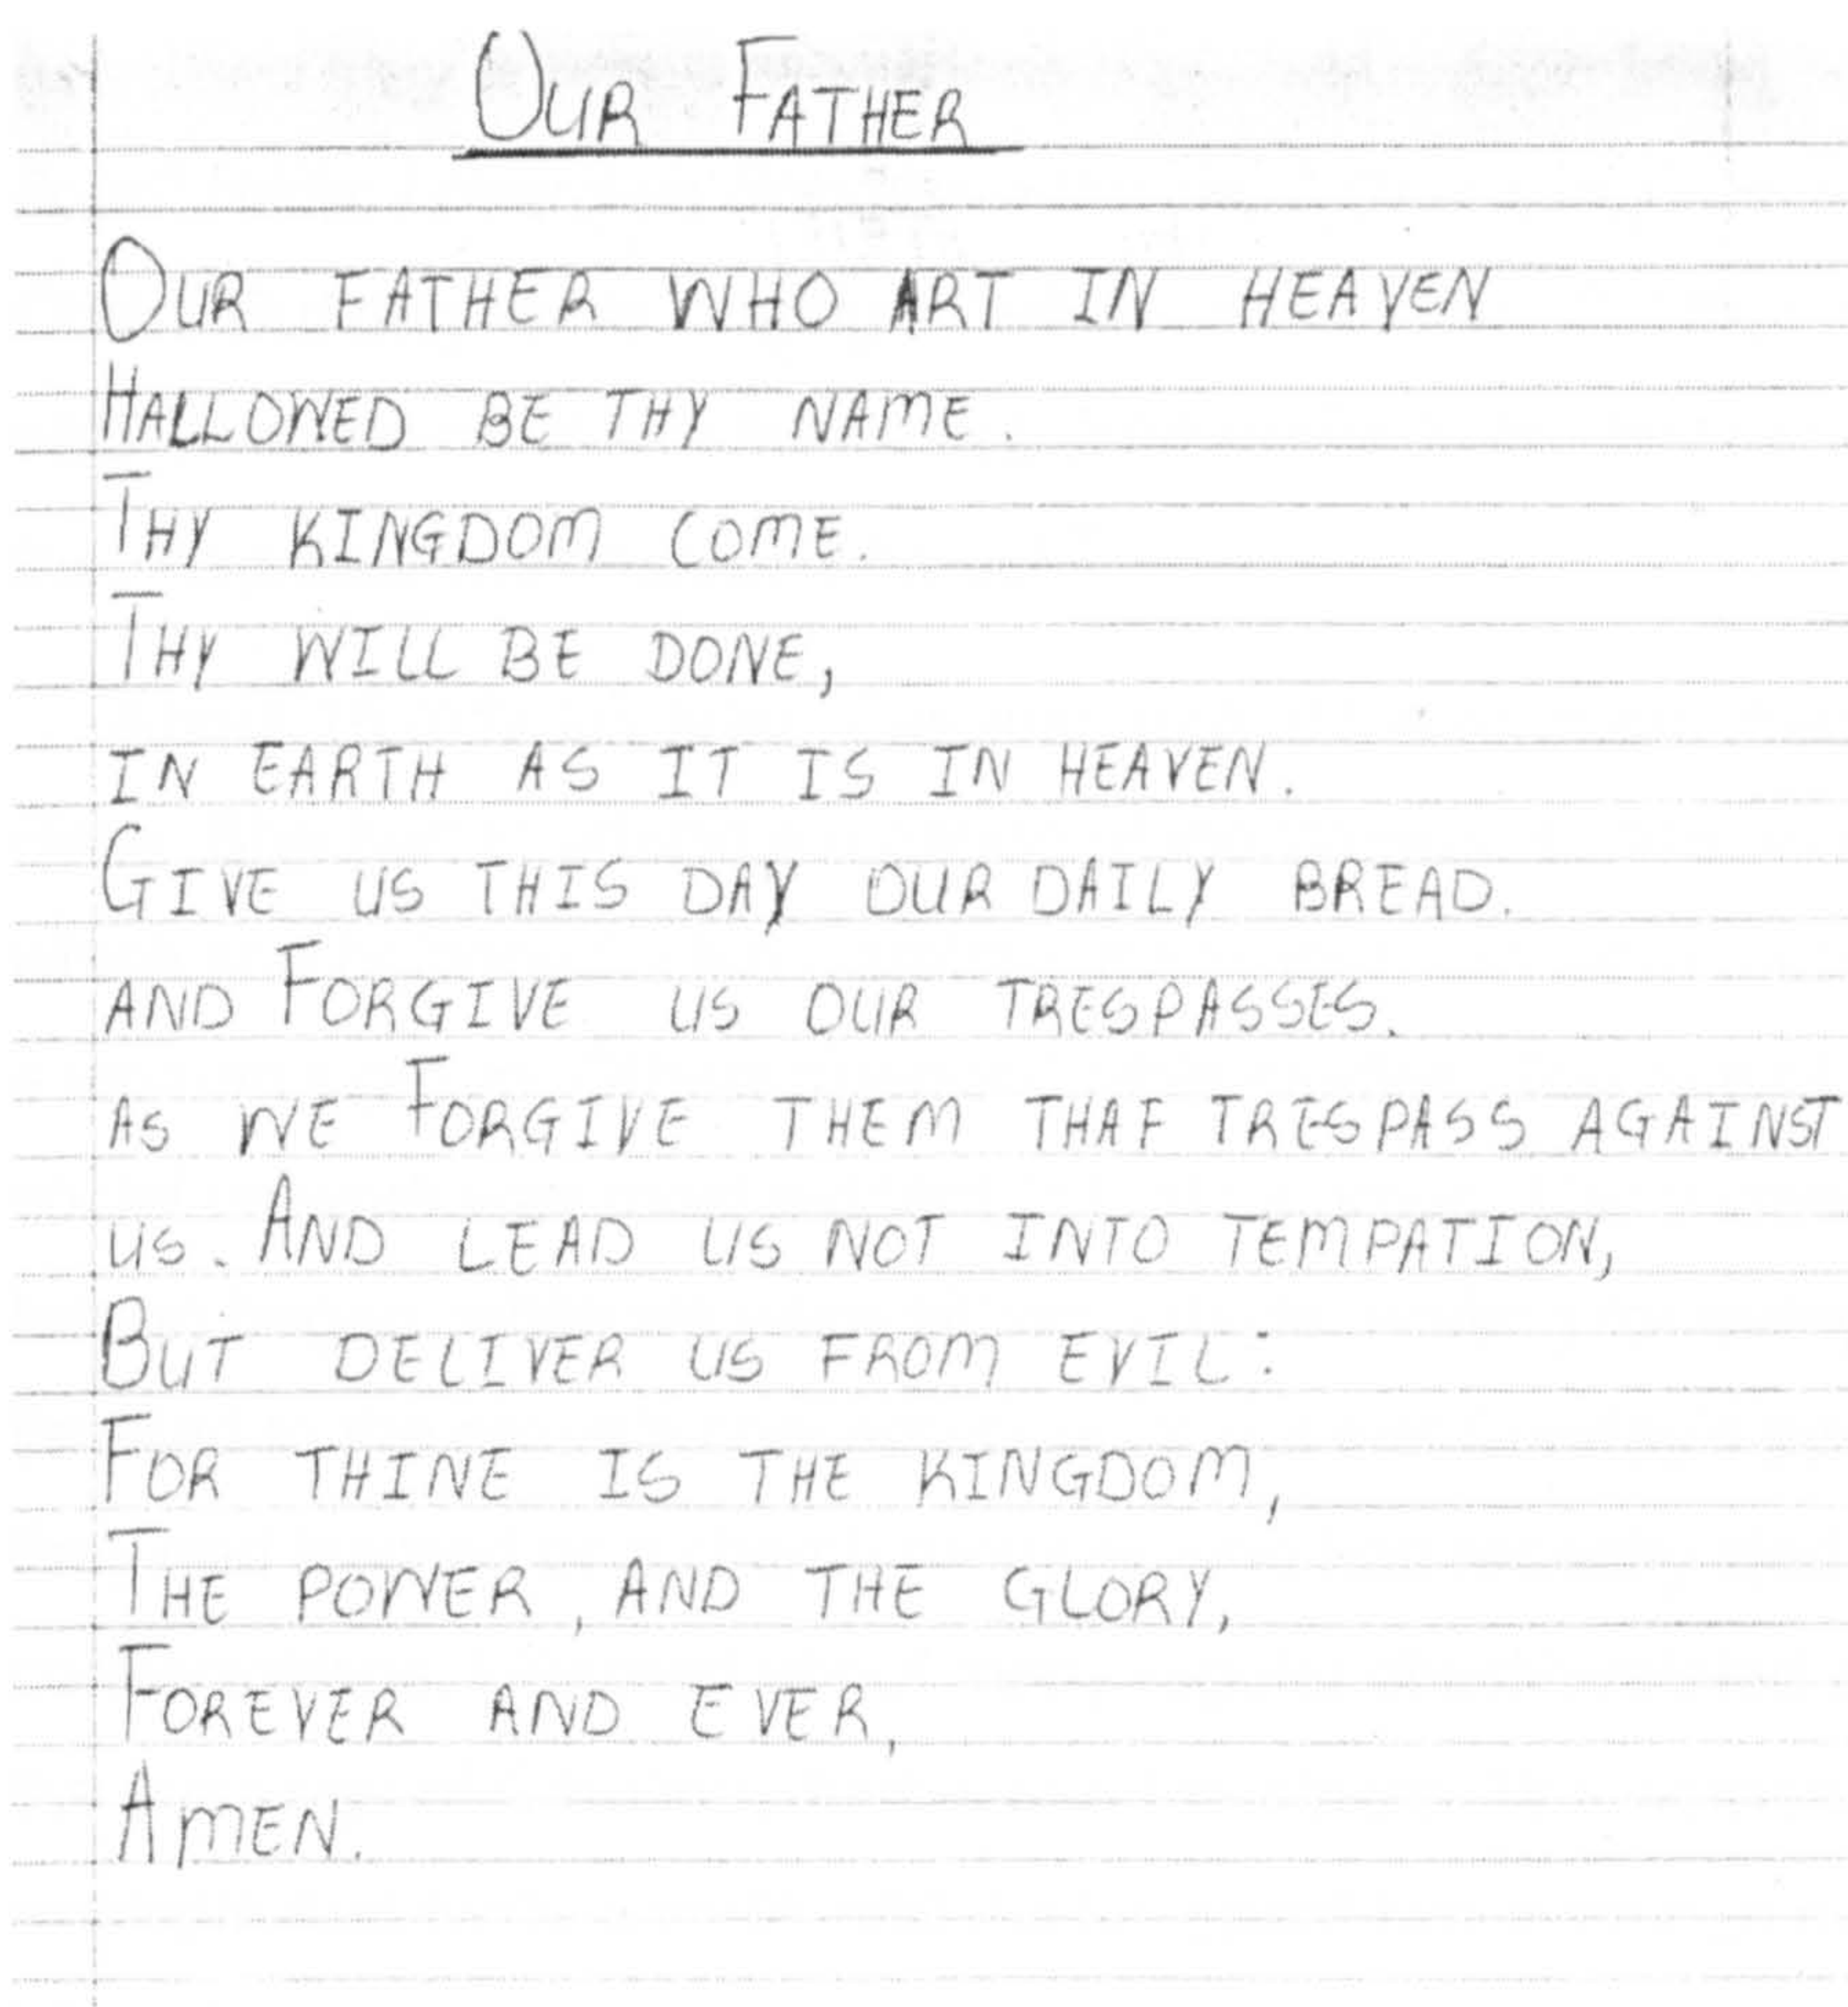 OUR FATHER
OUR FATHER WHO ART IN HEAVEN
HALLOWED BE THY NAME.
THY KINGDOM COME.
THY WILL BE DONE,
IN EARTH AS IT IS IN HEAVEN.
GIVE US THIS DAY OUR DAILY BREAD.
AND FORGIVE US OUR TRESPASSES.
AS WE FORGIVE THEM THAT TRESPASS AGAINST
US. AND LEAD US NOT INTO TEMPATION,
BUT DELIVER US FROM EVIL:
FOR THINE IS THE KINGDOM,
THE POWER, AND THE GLORY,
FOREVER AND EVER,
AMEN.